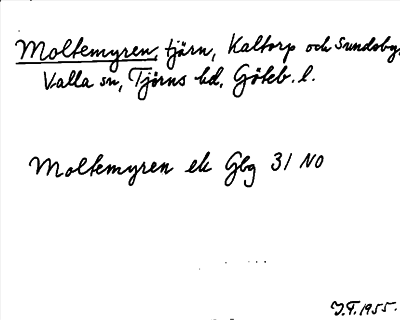 Moltemyren, tjärn, Kaltorp och Sundsby,
Valla sn, Tjörns hd, Göteb. l.
Moltemyren ek Gbg 31 NO
J.F. 1955.